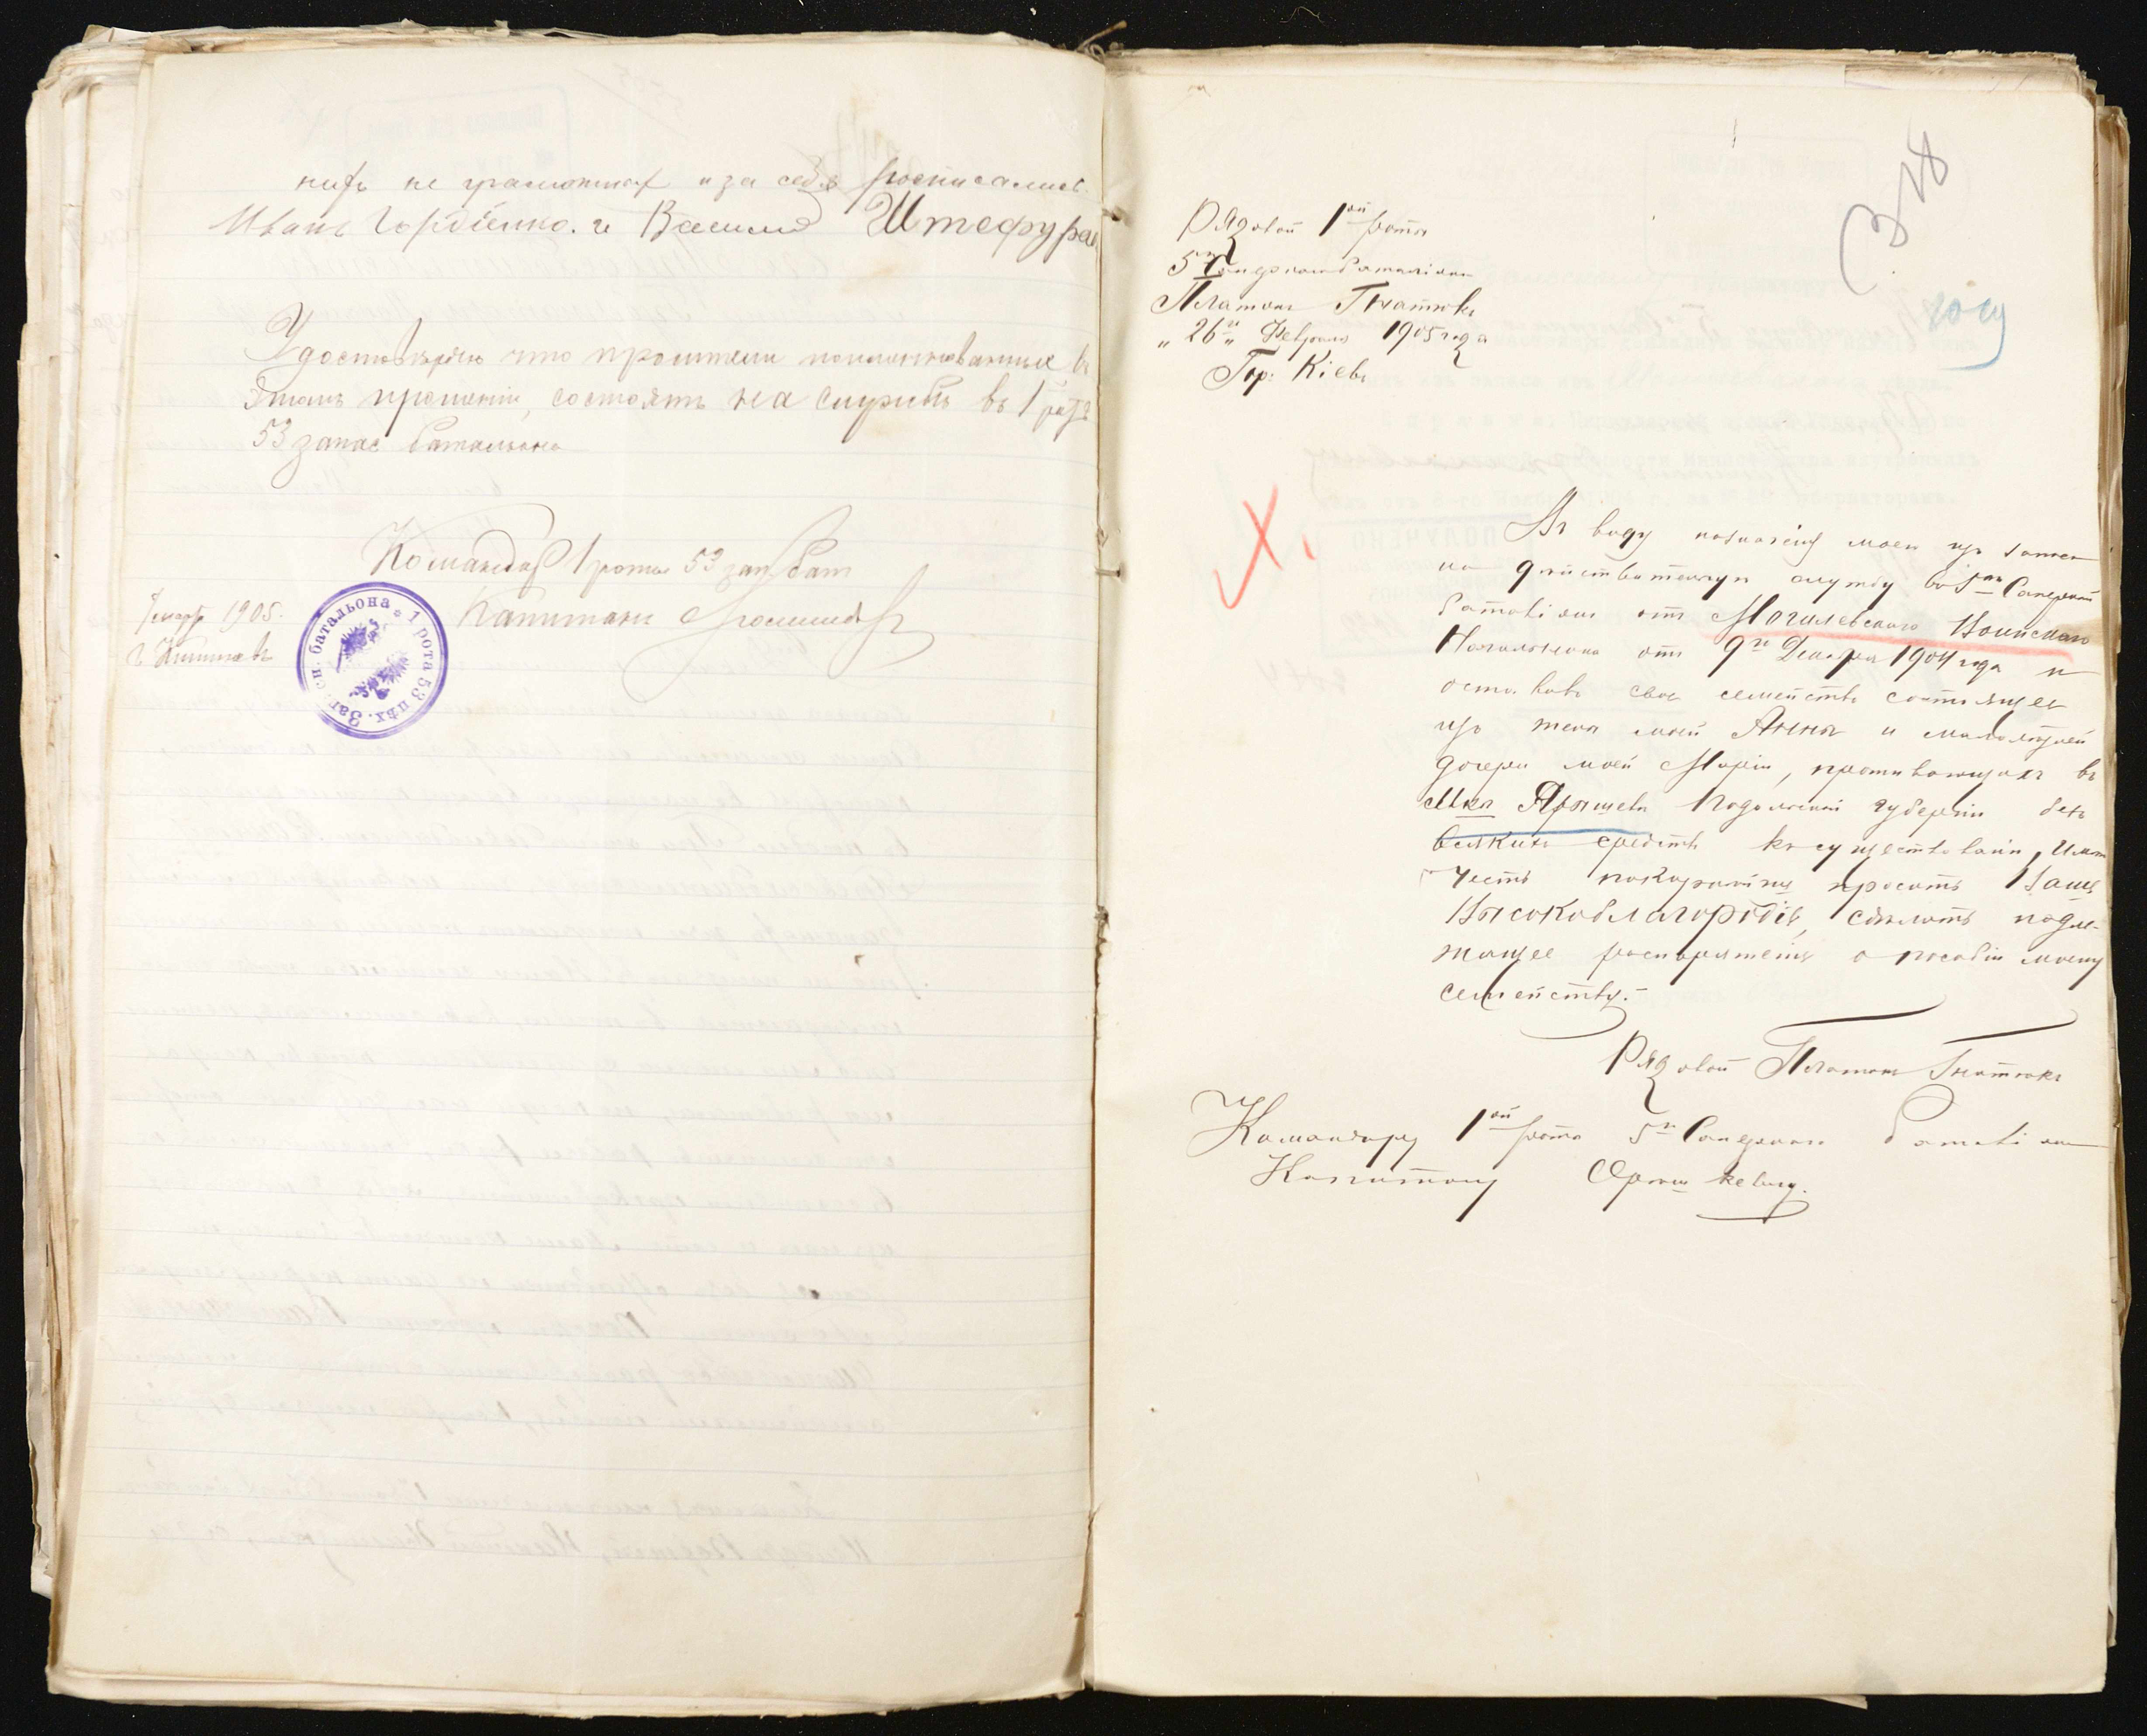 нихъ не грамотных и за себя росписались
Иванъ Гордіенко. и Василий Штефура
Удостовѣряю что просители поименнованные въ
этомъ прошеніи, состоятъ на службѣ въ 1 ротѣ
53 запас баталіона
Командир 1 роты 53 зап. бат
Капитанъ
7 марта 1905.
г Кишинев
1 рота 53 пѣх. Запасн. батальона
318
Рядовой 1ой роты
5го Сапернаго баталіона
Платонъ Гнатюкъ
„26го„ Февраля 1905 года
Гор: Кіевъ
Въ виду назначенія моего изъ запаса
на дѣйствительную службу въ 5й Саперный
баталіонъ отъ Могилевскаго Воинскаго
Начальника отъ 9го Декабря 1904 года и
оставивъ свое семейство состоящее
изъ жены моей Анны и малолѣтней
дочери моей Маріи, проживающихъ въ
М-кѣ Ярышевѣ Подольской губерніи безъ
всякихъ средствъ къ существованію, имѣю
честь покорнѣйше просить Ваше
Высокоблагородіе, сдѣлать надле-
жащее распоряженіе о пособіи моему
семейству.-
Рядовой Платонъ Гнатюкъ
Командиру 1ой роты 5го Сапернаго баталіона
Капитану